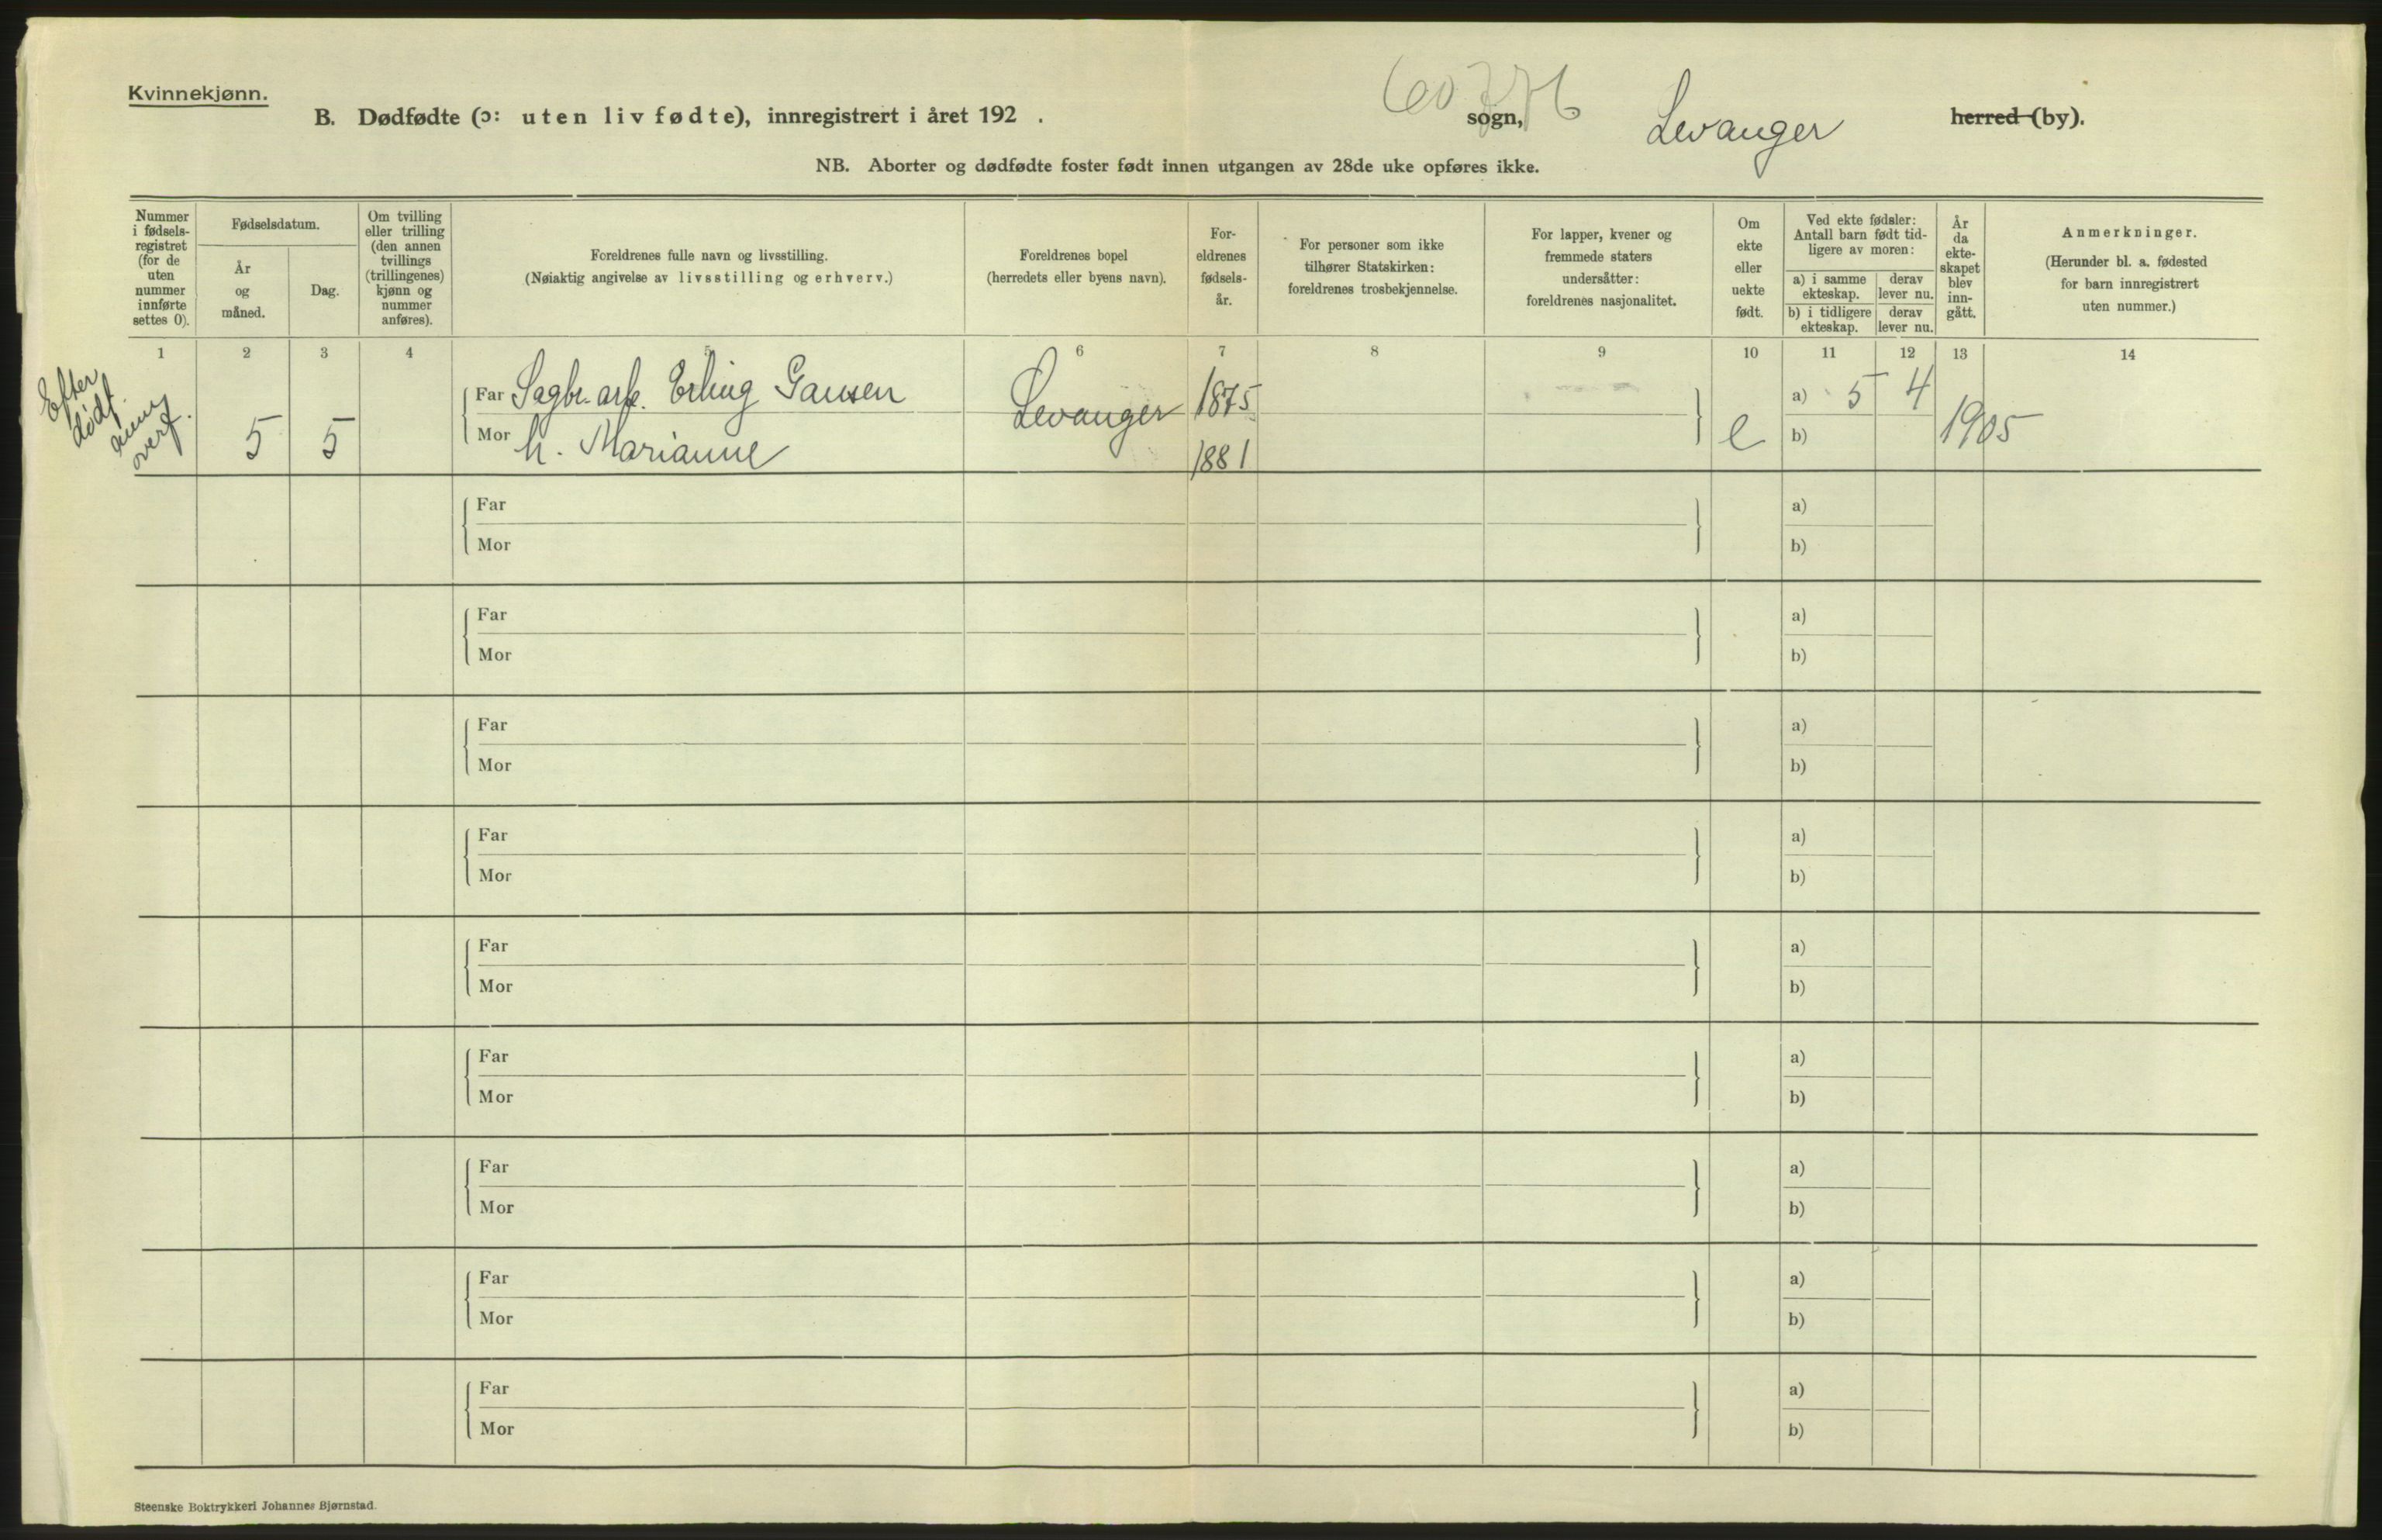 Kvinnekjønn.
B. Dødfødte (ɔ: uten liv fødte), innregistrert i året 192 .
sogn, Levanger herred (by).
NB. Aborter og dødfødte foster født innen utgangen av 28de uke opføres ikke.
Nummer i fødsels-registret (for de uten nummer innførte settes 0).
Fødselsdatum.
År og måned.
Dag.
Om tvilling eller trilling (den annen tvillings (trillingenes) kjønn og nummer anføres).
Foreldrenes fulle navn og livsstilling.
(Nøiaktig angivelse av livsstilling og erhverv.)
Foreldrenes bopel
(herredets eller byens navn).
For-eldrenes fødsels-år.
For personer som ikke tilhører Statskirken: foreldrenes trosbekjennelse.
For lapper, kvener og fremmede staters undersåtter: foreldrenes nasjonalitet.
Om ekte eller uekte født.
Ved ekte fødsler: Antall barn født tid-ligere av moren:
a) i samme ekteskap.
derav lever nu.
b) i tidligere ekteskap.
derav lever nu.
År da ekte-skapet blev inn-gått.
Anmerkninger.
(Herunder bl. a. fødested for barn innregistrert uten nummer.)
1 2 3 4 5 6 7 8 9 10 11 12 13 14
Efter
dødf.
overf.
5 5
Far Sagbr.arb. Erling Jansen Levanger 1875 a) 5 4
Mor h. Marianne 1881 e b) 1905
Far a)
Mor b)
Far a)
Mor b)
Far a)
Mor b)
Far a)
Mor b)
Far a)
Mor b)
Far a)
Mor b)
Far a)
Mor b)
Far a)
Mor b)
Far a)
Mor b)
Steenske Boktrykkeri Johannes Bjørnstad.